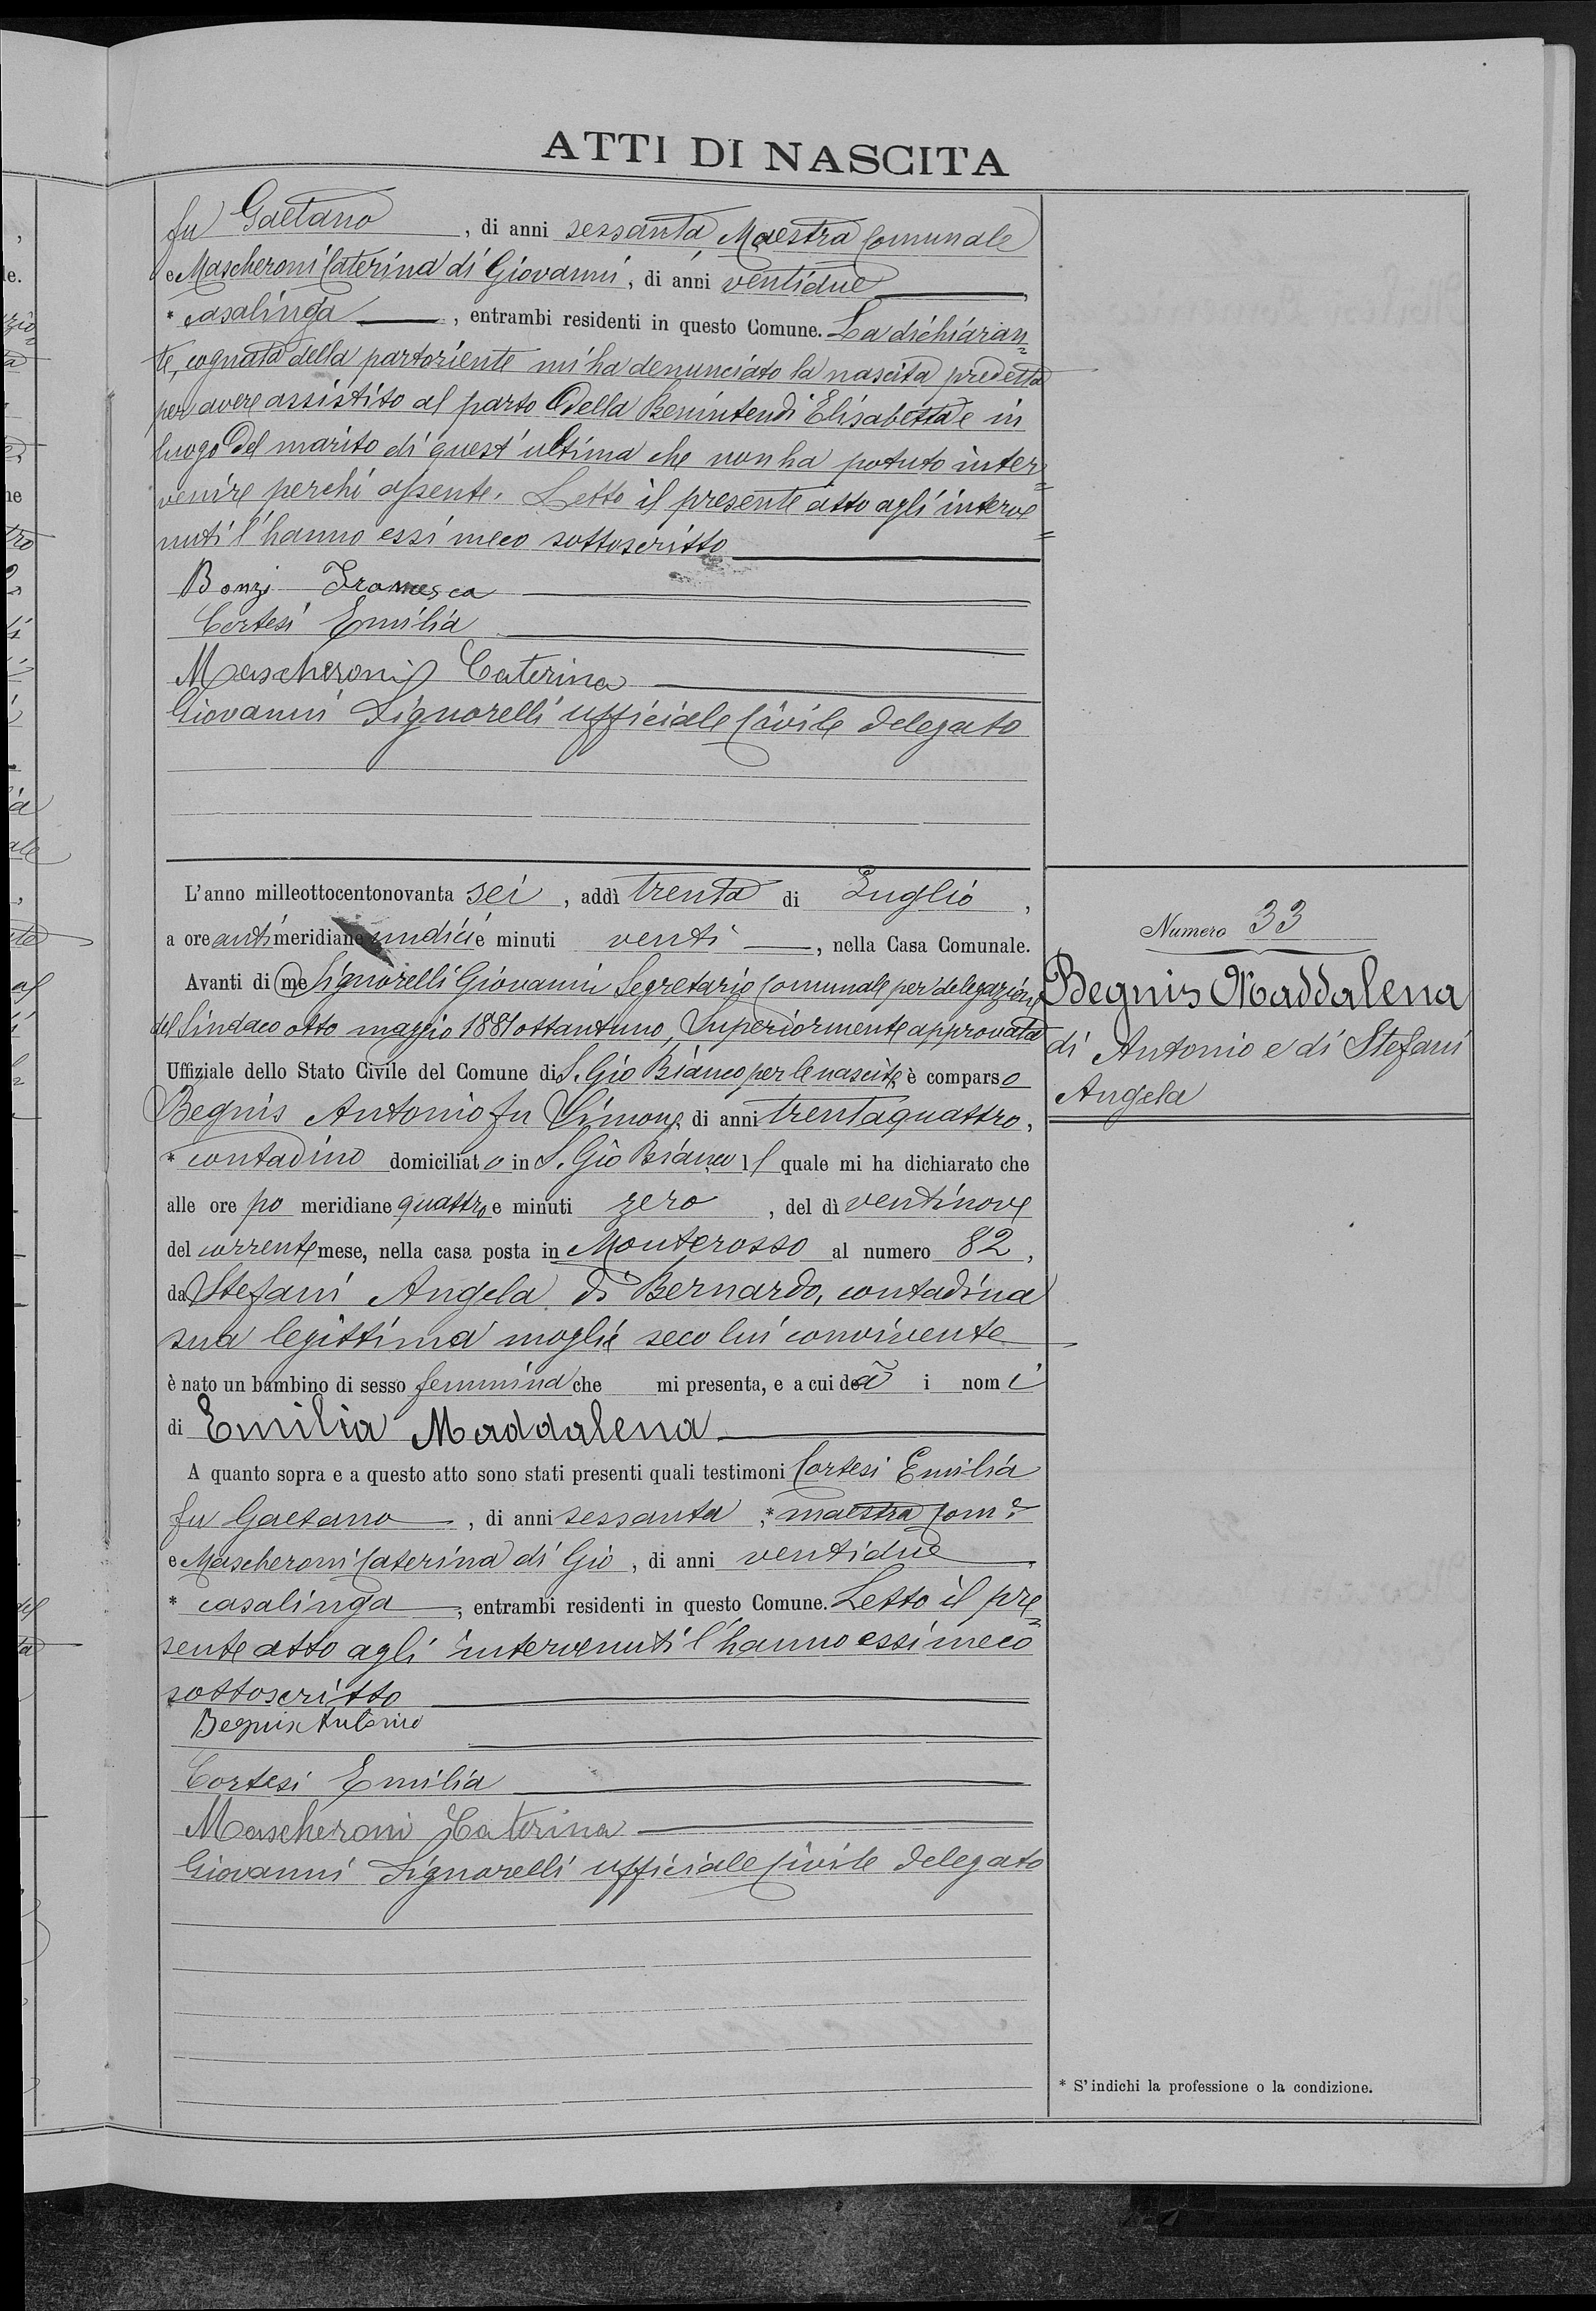 ATTI DI NASCITA
fu Gaetano, di anni sessanta, Maestra Comunale
e Mascheroni Caterina di Giovanni, di anni ventidue
* casalinga, entrambi residenti in questo Comune. La dichiaran=
te, cognata della partoriente mi ha denunciato la nascita predetta
per avere assistito al parto della Benintendi Elisabetta e in
luogo del marito di quest'ultima che non ha potuto inter=
venire perchè assente. Letto il presente atto agli interve=
nuti l'hanno essi meco sottoscritto
Bonzi Francesca
Cortesi Emilia
Mascheroni Caterina
Giovanni Signorelli ufficiale Civile delegato
L'anno milleottocentonovanta sei, addì trenta di Luglio,
a ore antimeridiane undici e minuti venti, nella Casa Comunale.
Avanti di me Signorelli Giovanni Segretario Comunale per delegazione
del Sindaco otto maggio 1881 ottantuno, Superiormente approvata
Uffiziale dello Stato Civile del Comune di S. Gio Bianco per le nascite, è comparso
Begnis Antonio fu Simone, di anni trentaquattro,
* contadino domiciliato in S. Gio Bianco, il quale mi ha dichiarato che
alle ore po meridiane quattro e minuti zero, del dì ventinove
del corrente mese, nella casa posta in Monterosso al numero 82,
da Stefani Angela di Bernardo, contadina
sua legittima moglie seco lui convivente
è nato un bambino di sesso femmina che mi presenta, e a cui dà i nomi
di Emilia Maddalena
A quanto sopra e a questo atto sono stati presenti quali testimoni Cortesi Emilia
fu Gaetano, di anni sessanta, * maestra Com.e
e Mascheroni Caterina di Gio, di anni ventidue,
* casalinga, entrambi residenti in questo Comune. Letto il pre=
sente atto agli intervenuti l'hanno essi meco
sottoscritto
Begnis Antonio
Cortesi Emilia
Mascheroni Caterina
Giovanni Signorelli ufficiale Civile delegato
Numero 33
Begnis Maddalena
di Antonio e di Stefani
Angela
* S'indichi la professione o la condizione.